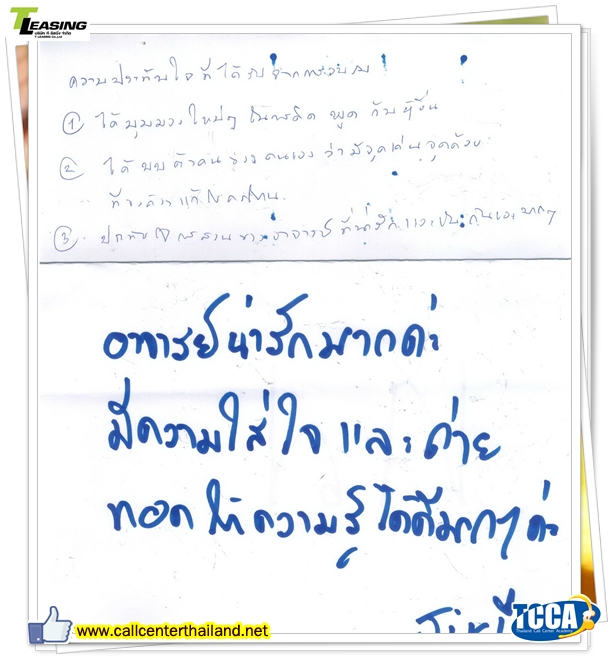 T LEASING
บริษัท ที ลิสซิ่ง จำกัด
T LEASING Co.,Ltd
ความประทับใจ ที่ได้รับจากการอบรม
① ได้มุมมองใหม่ๆ ในการคิด พูด กับผู้อื่น
② ได้ ตัวตน ของ ตนเอง ว่ามีจุดเด่น จุดด้อย
ที่ แก้ไข
③ ประทับใจ การสอน ของ อาจารย์ ที่น่ารัก และเป็นกันเอง มากๆ
อาจารย์น่ารักมากค่ะ
มีความใส่ใจ และถ่าย
ทอดให้ความรู้ได้ดีมากๆ ค่ะ
www.callcenterthailand.net
TCCA
Thailand Call Center Academy